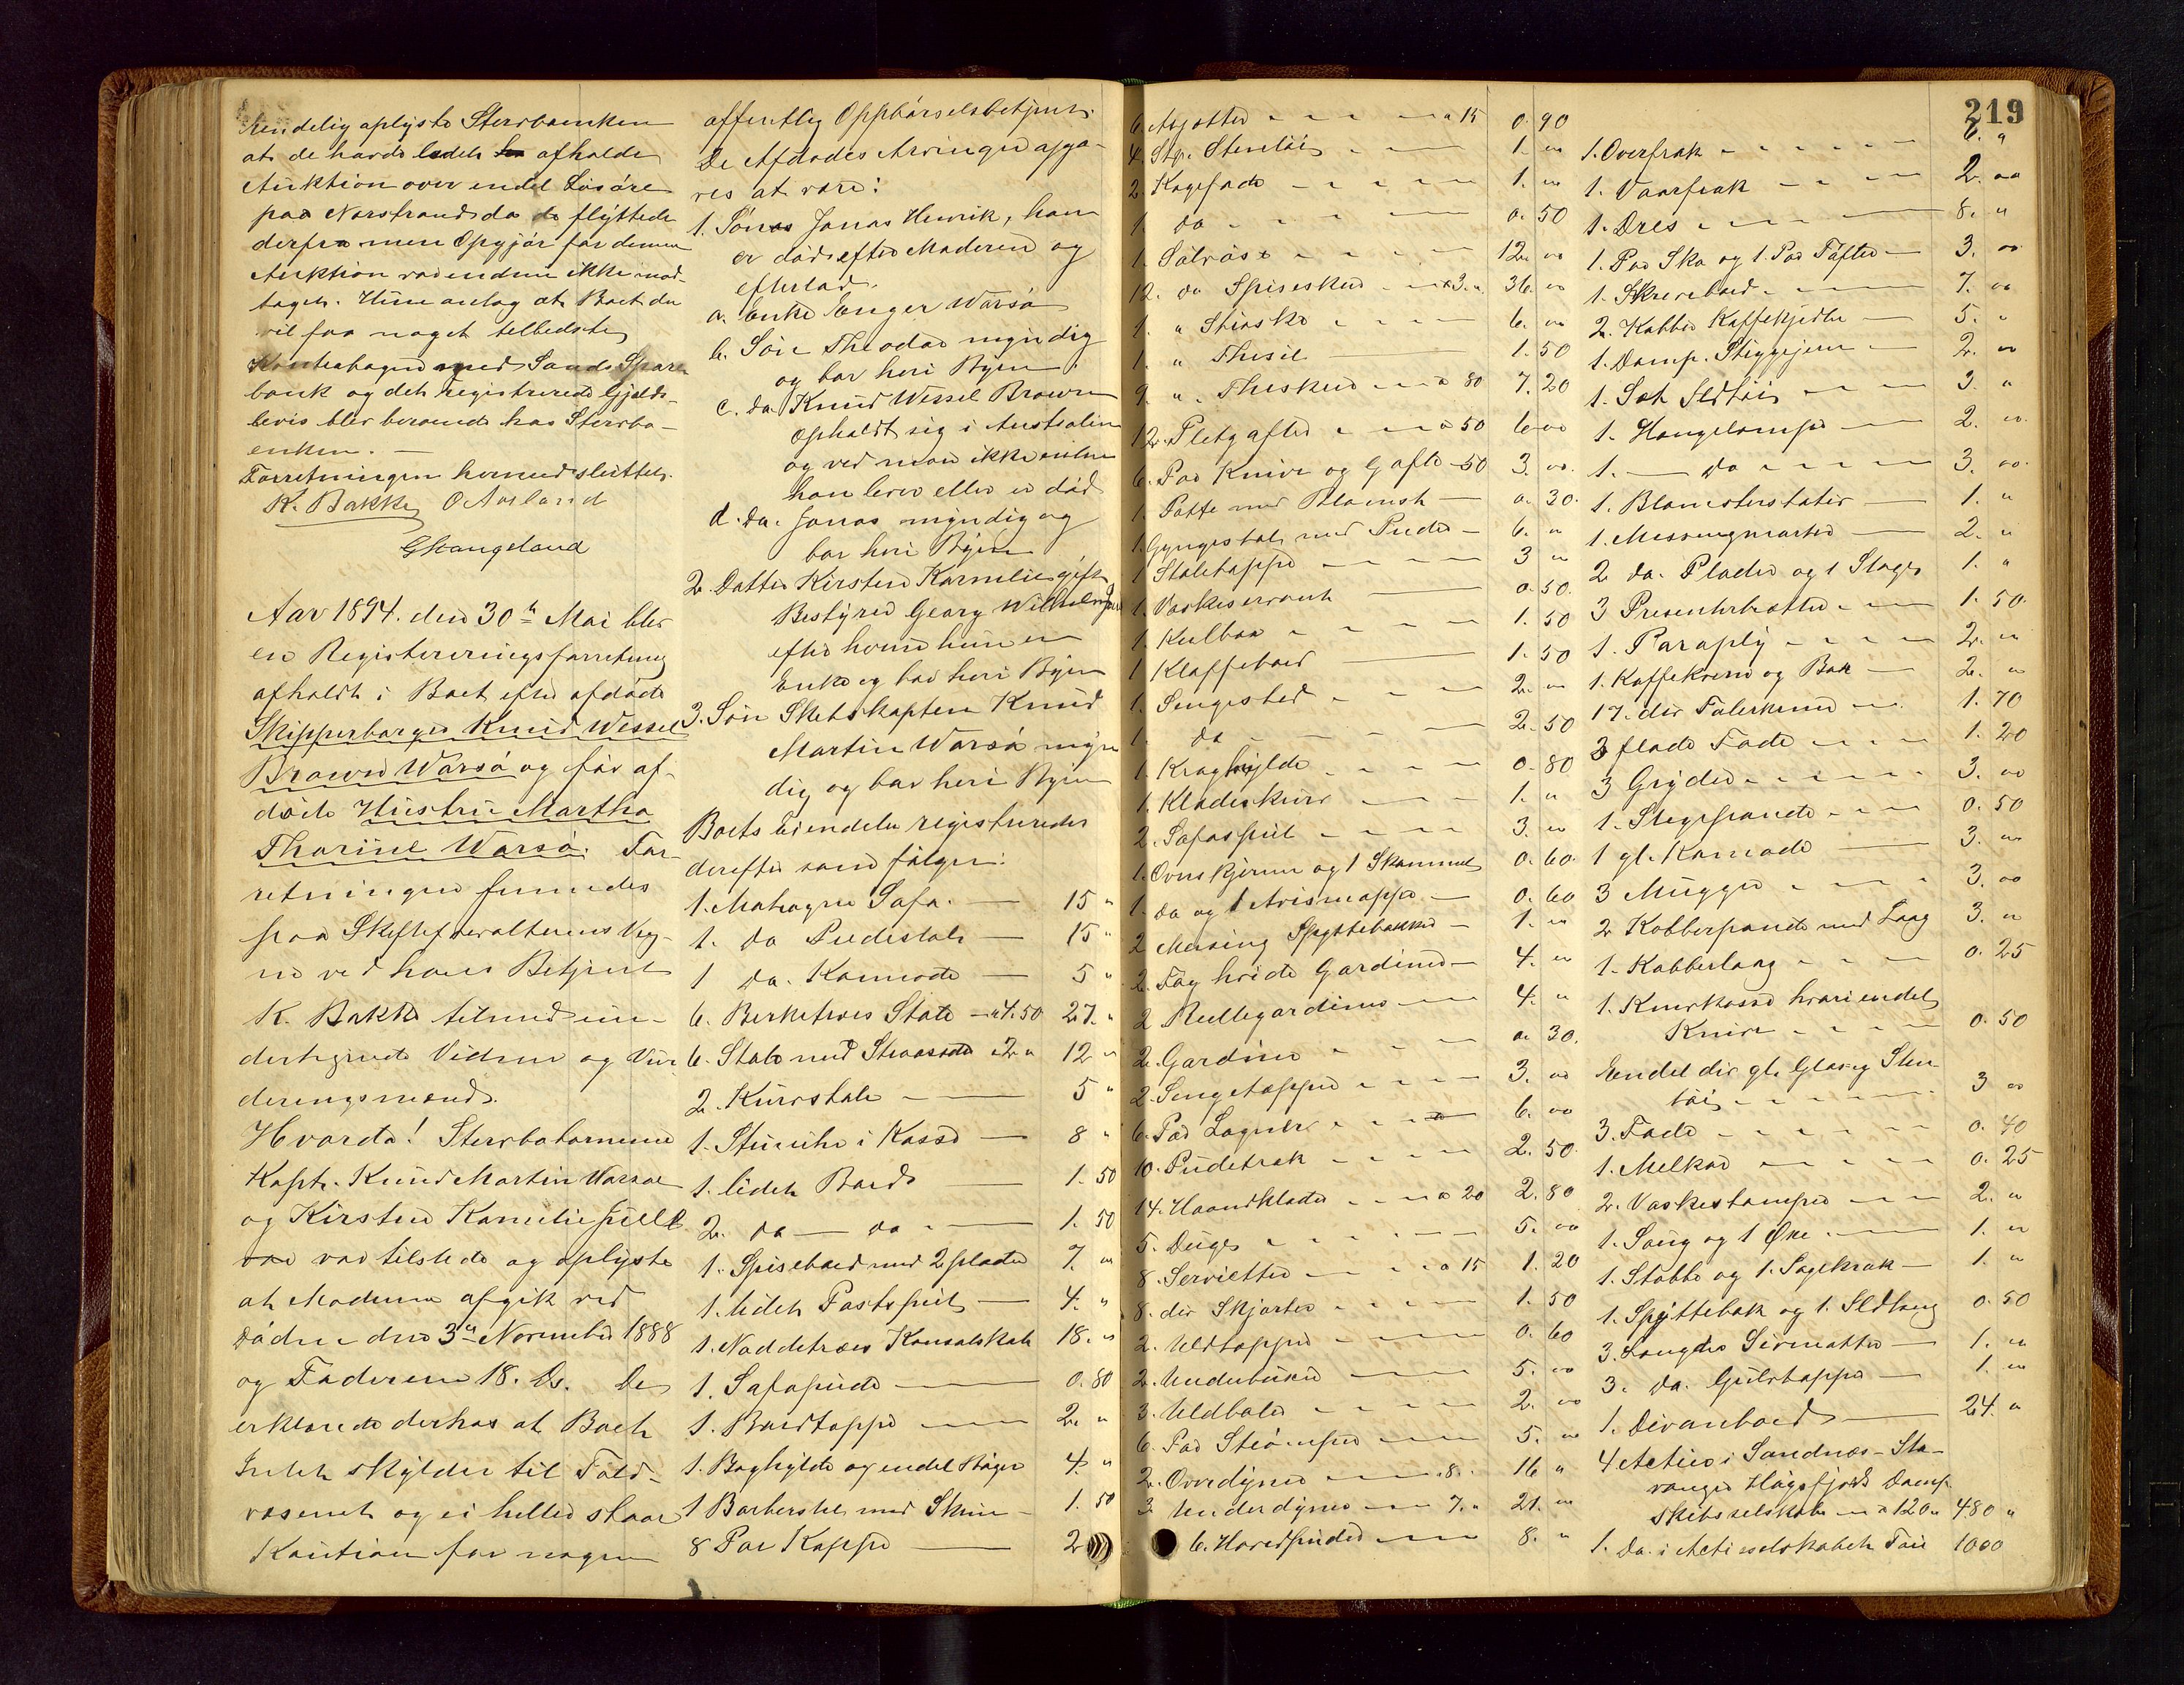 endelig oplyste Stervboenken
at de havde ladet afholde
Auktion over endel Løsøre
paa Norstrand da de flyttede
derfra men Opgjør for denne
Auktion var endnu ikke mod-
taget. Hun antog at Boet du
vil faa noget tilbedste
Kontrabogen med Sands Spare-
bank og det registrerede Gjælds-
bevis blev beroende hos Stervbo-
enken. —
Forretningen hermed sluttet.
K. Bakke O Aarland
G Haugeland
Aar 1894. den 30te Mai blev
en Registreringsforretning
afholdt i Boet efter afdøde
Skipperborger Knud Wessel
Brown Warsø og før af-
døde Hustru Martha
Thorine Warsø. For-
retningen fremmedes
paa Skifteforvalterens Veg-
ne ved hans Betjent
K. Bakke tilmed un-
dertegnede Vidner og Vur
deringsmænd.
Hvorda! Stervboharnene
Kapt. Knud Martin Warsøe
og Kirsten Kornelie
var tilstede og oplyste
at Moderen afgik ved
Døden den 3de November 1888
og Faderen 18. Ds. De
erklærede derhos at Boet
Intet skylder til Told-
væsenet og ei heller staar
Kaution for nogen
offentlig Oppbørselsbetjent.
De Afdødes Arvinger opga-
ves at være:
1. Sønnen Jonas Henrik, han
er død efter Moderen og
efterlod.
a. Enke Enger Warsø
b. Søn Theodor myndig
og bor heri Byen.
c. Da Knud Wessel Brown
opholdt sig i Australien
og ved man ikke enten
han lever eller er død
d. Da. Jonas myndig og
bor heri Byen
2. Datter Kirsten Kornelie gift
Bestyrer Georg Wilhelm
efter hvem hun er
Enke og bor heri Byen
3. Søn Skibskaptein Knud
Martin Warsø myn
dig og bor heri Byen
Boets Eiendele registreredes
derefter som følger:
1. Mahogne Sofa. — 15 "
1. do Piedestal — 15 "
1 do. Komode — 5 "
6. Birketræs Stole — a 4.50 27. "
6. Stole med Straasæde a 2 " 12 "
2. Kurvstole — 5 "
1. Stueuhr i Kasse — 8 "
1. lidet Bord — 1. 50
2. do — do — 1. 50
1. Spisebord med 2 plader 7. "
1. lidet Postspeil — 4. "
1. Nøddetræes Konsolskab 18. "
1. Sofapude — 0. 80
1. Bordtæppe — 2. "
1. Boghylde og endel Bøger 4. "
1 Barberstel med Skrin — 1. 50
8 Par Kopper — 2
219
6. Asjetter — a 15 0. 90
4. Stp. Stentøi — 1. "
2. Kagefade — 1. "
1. do — 0. 50
1. Sølvøse — 12. "
12. do Spiseskeer — a 3. " 36. "
1. " Strøske — 6. "
1. " Thesil 1. 50
9. " Theskeer — a 80 7. 20
12. Pletgafler — a 50 6. "
6. Par Knive og Gafle — 50 3. "
1. Potte med Blomst — 0. 30.
1. Gyngestol med Puder — 6. "
1 Stoletæppe — 3 "
1. Vaskeservant — 0. 50.
1. Kulbox — 1. 50
1 Klaffebord — 1. 50
1. Sengested — 2. "
1. do — 2. 50
1. Kraghylde — 0. 80
1. Klædeskurv — 1. "
2. Sofaspeil — 3. "
1. Ovnskjerm og 1 Skammel 0. 60.
1. do og 1 Avismappe — 0. 60
2 Messing Spyttebakker — 1. "
2. Fag hvide Gardiner — 4. "
2 Rullegardiner — 4. "
2. Gardiner — 0. 30.
2. Sengetæpper — 3. "
6. Par Lagner — 6. "
10. Pudetræk — 2. 50
14. Haandklæder — a 20 2. 80
5. Duge — 5. "
8. Servietter — a 15 1. 20
8. div Skjorter — 1. 50
2. Uldtæpper — 0. 60
2. Underbuxer — 5. "
3. Uldboler — 2. "
6. Par Strømper — 5. "
2. Overdyner — a 8. " 16 "
3 Underdyner — 7. " 21. "
6. Hovedpuder — 8. "
1. Overfrak — 6. "
1. Vaarfrak — 2. "
1. Dres — 8. "
1. Par Sko og 1. Par Tøfler — 3. "
1. Skrivebord — 7. "
2. Kobber Kaffekjedler — 5. "
1. Damp. Strygejern — 2. "
1. Sæt Ildtøi — 3. "
1. Hængelampe — 2. "
1. — do — 3. "
1. Blomsterstativ — 1. "
1. Messingmorter — 2. "
2 do. Plader og 1 Stage 1. "
3 Presenterbrætter — 1. 50.
1. Paraply — 2. "
1. Kaffekværn og Box — 2. "
17. div Talerkener — 1. 70
3 flade Fade — 1. 20
3 Gryder — 3. "
1. Stegepande — 0. 50
1 gl. Komode — 3. "
3 Mugger — 3. "
2 Kobberpander med Laag 3. "
1. Kobberlaag — 0. 25
1. Knivkasse hvori endel
Knive — 0. 50
Endel div gl. Glas og Sten-
tøi — 3 "
3. Fade — 0. 40
1. Melkar — 0. 25
2. Vaskestamper — 2. "
1. Saug og 1 Øxe — 1. "
1. Stabbe og 1. Sagkrak — 1. "
1. Spyttebak og 1. Ildtang 0. 50
3. Længder Sivmatter — 1. "
3. do. Gulvtæppe — 1. "
1. Divanbord — 24. "
4 Actier i Sandnæs-Sta-
vanger Høgsfjords Damp-
skibsselskab — a 120 " 480 "
1. Do. i Actieselskabet 1000